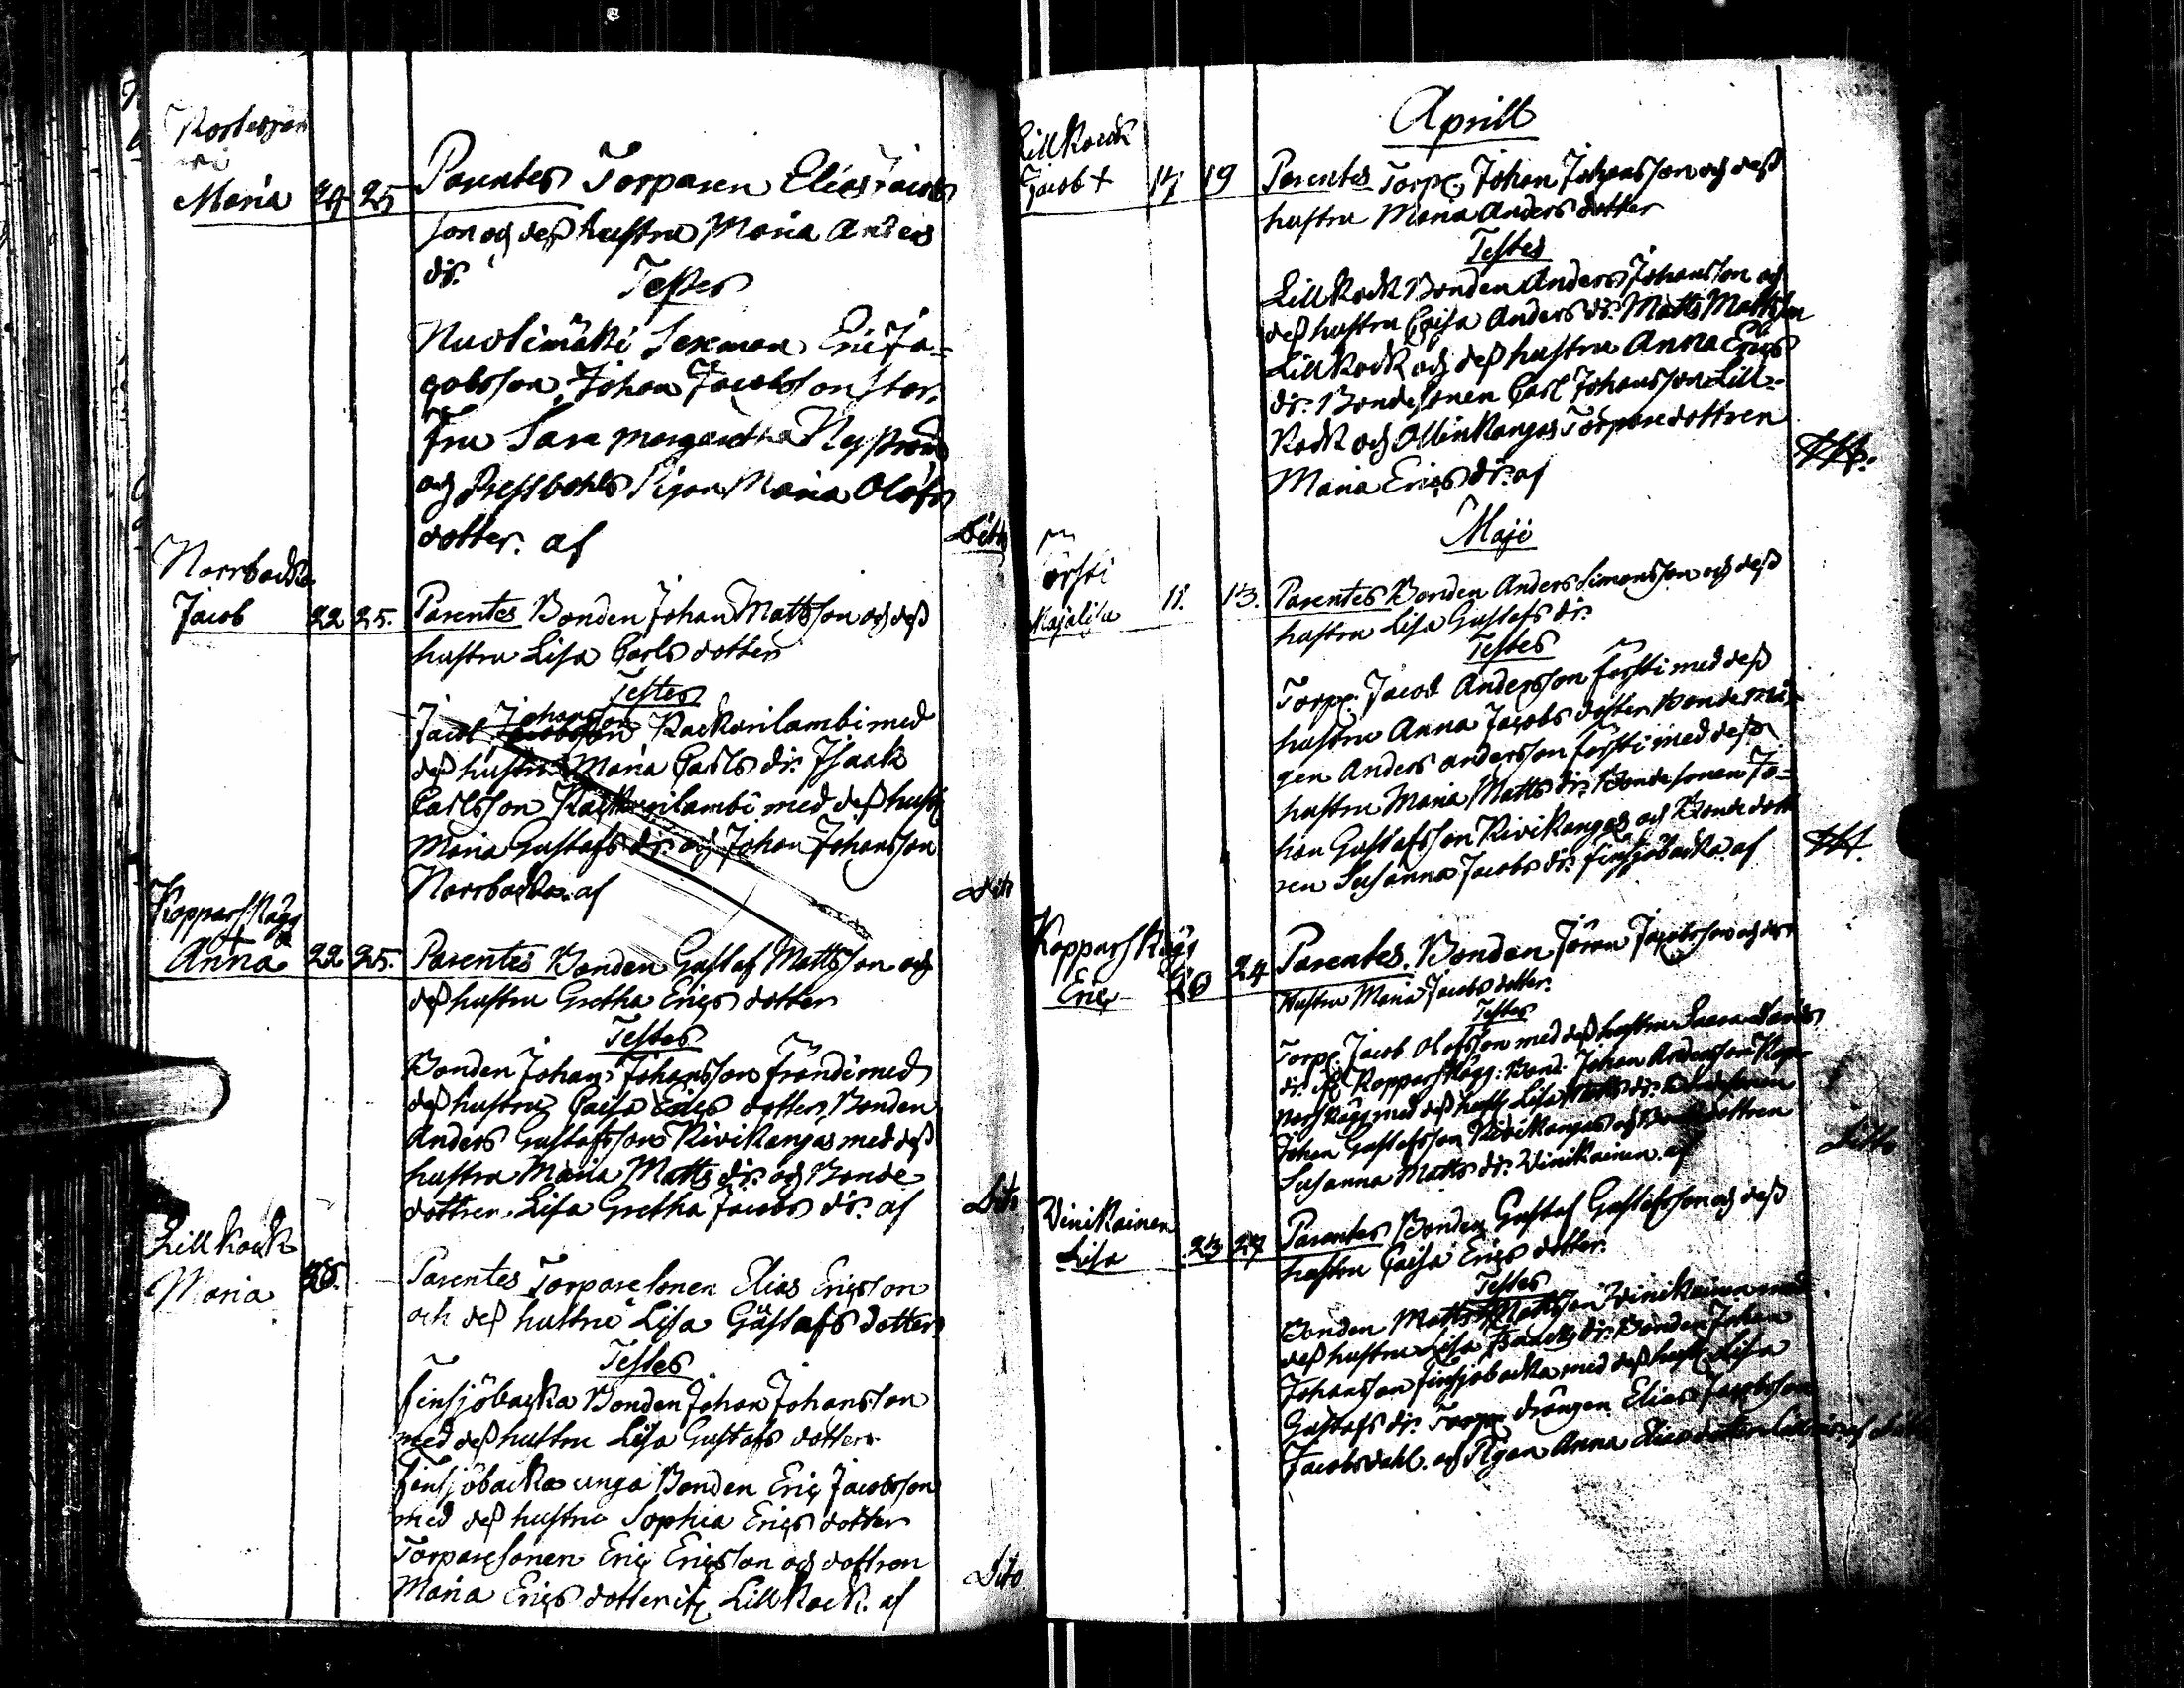 Maria 24 25 Parentes Torparen Elias Jacobs
son och deß hustru Maria Anders
dr.
Testes
Nuolimäki Sexman Eric Ja=
cobsson, Johan Jacobsson
Fru Sara Margaretha Nyström
och Pigan Maria Olofs
dotter. af Dito
Norrbacka
Jacob 22 25. Parentes Bonden Johan Mattsson och deß
hustru Lisa Carls dotter
Testes
Johansson
Jacob Jacobsson Kackurilambi med
deß hustru Maria Carls dr. Isaak
Carlsson Kackurilambi med deß hust
Maria Gustafs dr. och Johan Johansson
Norrbacka. af Dito
Kopparskägg
Anna 22 25. Parentes Bonden Gustaf Mattsson och
deß hustru Gretha Erics dotter
Testes
Bonden Johan Johansson Fröndi med
deß hustru Caisa Erics dotter, Bonden
Anders Gustafsson Kivikangas med deß
hustru Maria Matts dr. och Bonde
dottren Lisa Gretha Jacobs dr. af Dito
Lillkåck
Maria 28. Parentes Torparesonen Elias Ericsson
och deß hustru Lisa Gustafs dotter
Testes
Finsjöbacka Bonden Johan Johansson
med deß hustru Lisa Gustafs dotter
Finsjöbacka unga Bonden Eric Jacobsson
med deß hustru Sophia Erics dotter
Torparesonen Eric Ericsson och dottren
Maria Erics dotter Lillkåck. af Dito
Aprill
Lillkåck
Jacob + 17 19 Parentes Torp. Johan Johansson och deß
hustru Maria Anders dotter
Testes
Lillkåck Bonden Anders Johansson och
deß hustru Caisa Anders dr. Matts Mattsson
Lillkåck och deß hustru Anna Erics
dr. Bondesonen Carl Johansson Lill=
kåck och Ollinkangas Torparedottren
Maria Erics dr. af
Maji
Försti
Majalisa 11. 13. Parentes Bonden Anders Simonsson och deß
hustru Lisa Gustafs dr.
Testes
Torp. Jacob Andersson Försti med deß
hustru Anna Jacobs dotter Bonde må=
gen Anders Andersson Försti med deß
hustru Maria Matts dr. Bondesonen Jo=
han Gustafsson Kivikangas och Bonde dott
ren Susanna Jacobs dr. Finsjöbacka. af
Kopparskägg
Eric 20 24 Parentes. Bonden Jöran Jacobsson och deß
Hustru Maria Jacobs dotter.
Testes
Torp. Jacob Olofsson med deß hustru
dr. Kopparskägg: Bond. Johan Andersson Kop=
parskägg med deß hust Lisa Matts dr. Bondesonen
Johan Gustafsson Kivikangas och Bondedottren
Susanna Matts dr. Vinikainen. af Ditto
Vinikainen
Lisa 23 27 Parentes Bonden Gustaf Gustafsson och deß
hustru Caisa Erics dotter.
Testes
Bonden Matts Mattsson Vinikainen med
deß hustru Lisa Isaacs dr. Bonden Johan
Johansson Finsjöbacka med deß hust. Lisa
Gustafs dr. Torp. drängen Elias Jacobsson
Jacobsdahl. och Pigan Anna Elias dotter